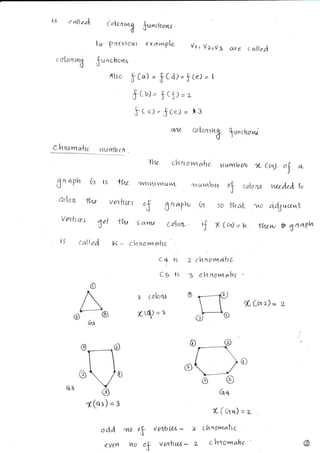 is called coloring functions.
In previous example V1, V2, V3 are called
coloring functions
Also f(a) = f(d) = f(e) = 1
f(b) = f(f) = 2
f(c) = f(e) = 3
are coloring functions
Chromatic number.
The chromatic number χ(G) of a
graph G is the minimum number of colors needed to
color the vertices of graph G so that no adjacent
vertices get the same color. if χ(G) = k then graph
is called k - chromatic.
C4 is 2 chromatic
C5 is 3 chromatic.
① ② ③
G1
3 colors
χ(G) = 3
① ② ① ②
χ(G2) = 2
G3
χ(G3) = 3
G4
χ(G4) = 2
odd no of vertices - 3 chromatic
even no of vertices - 2 chromatic